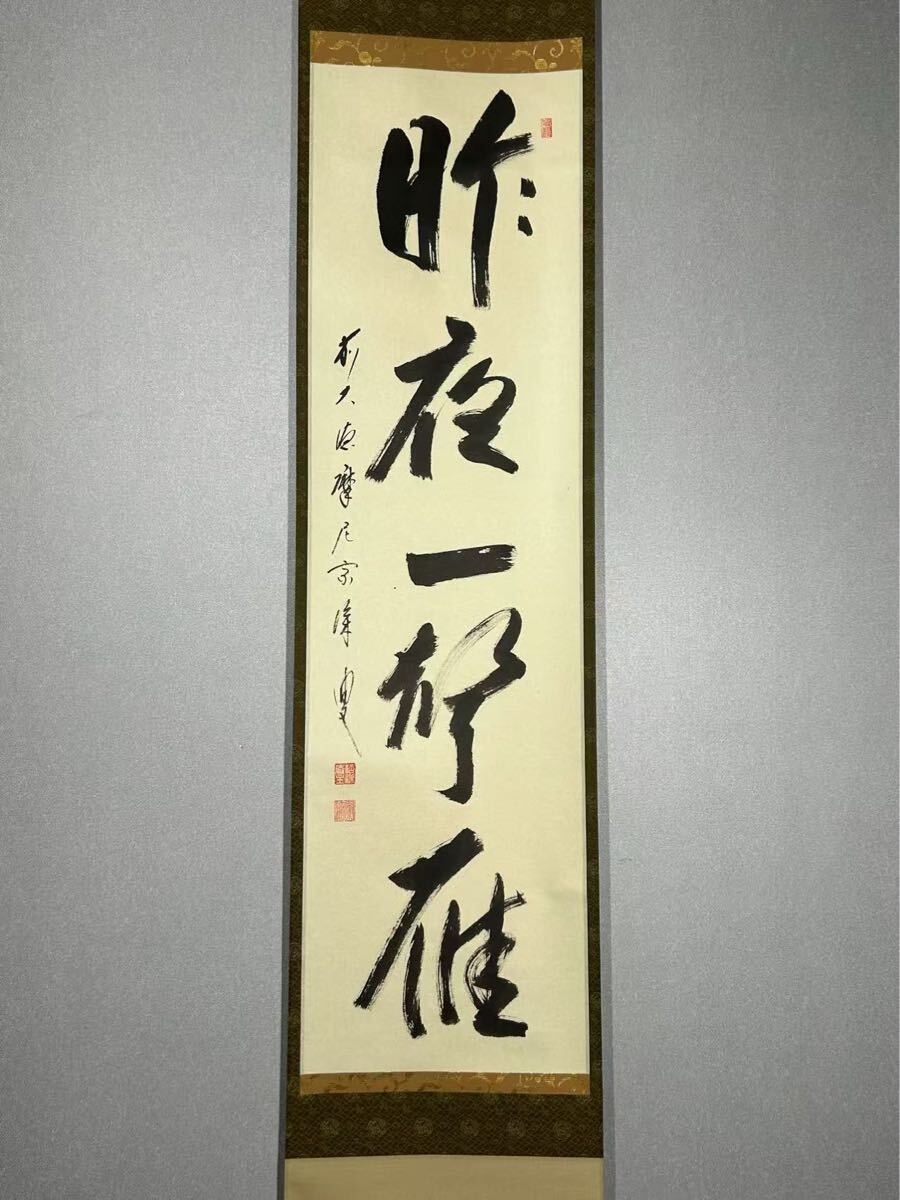 昨夜一聲雁
前大徳摩尼宗